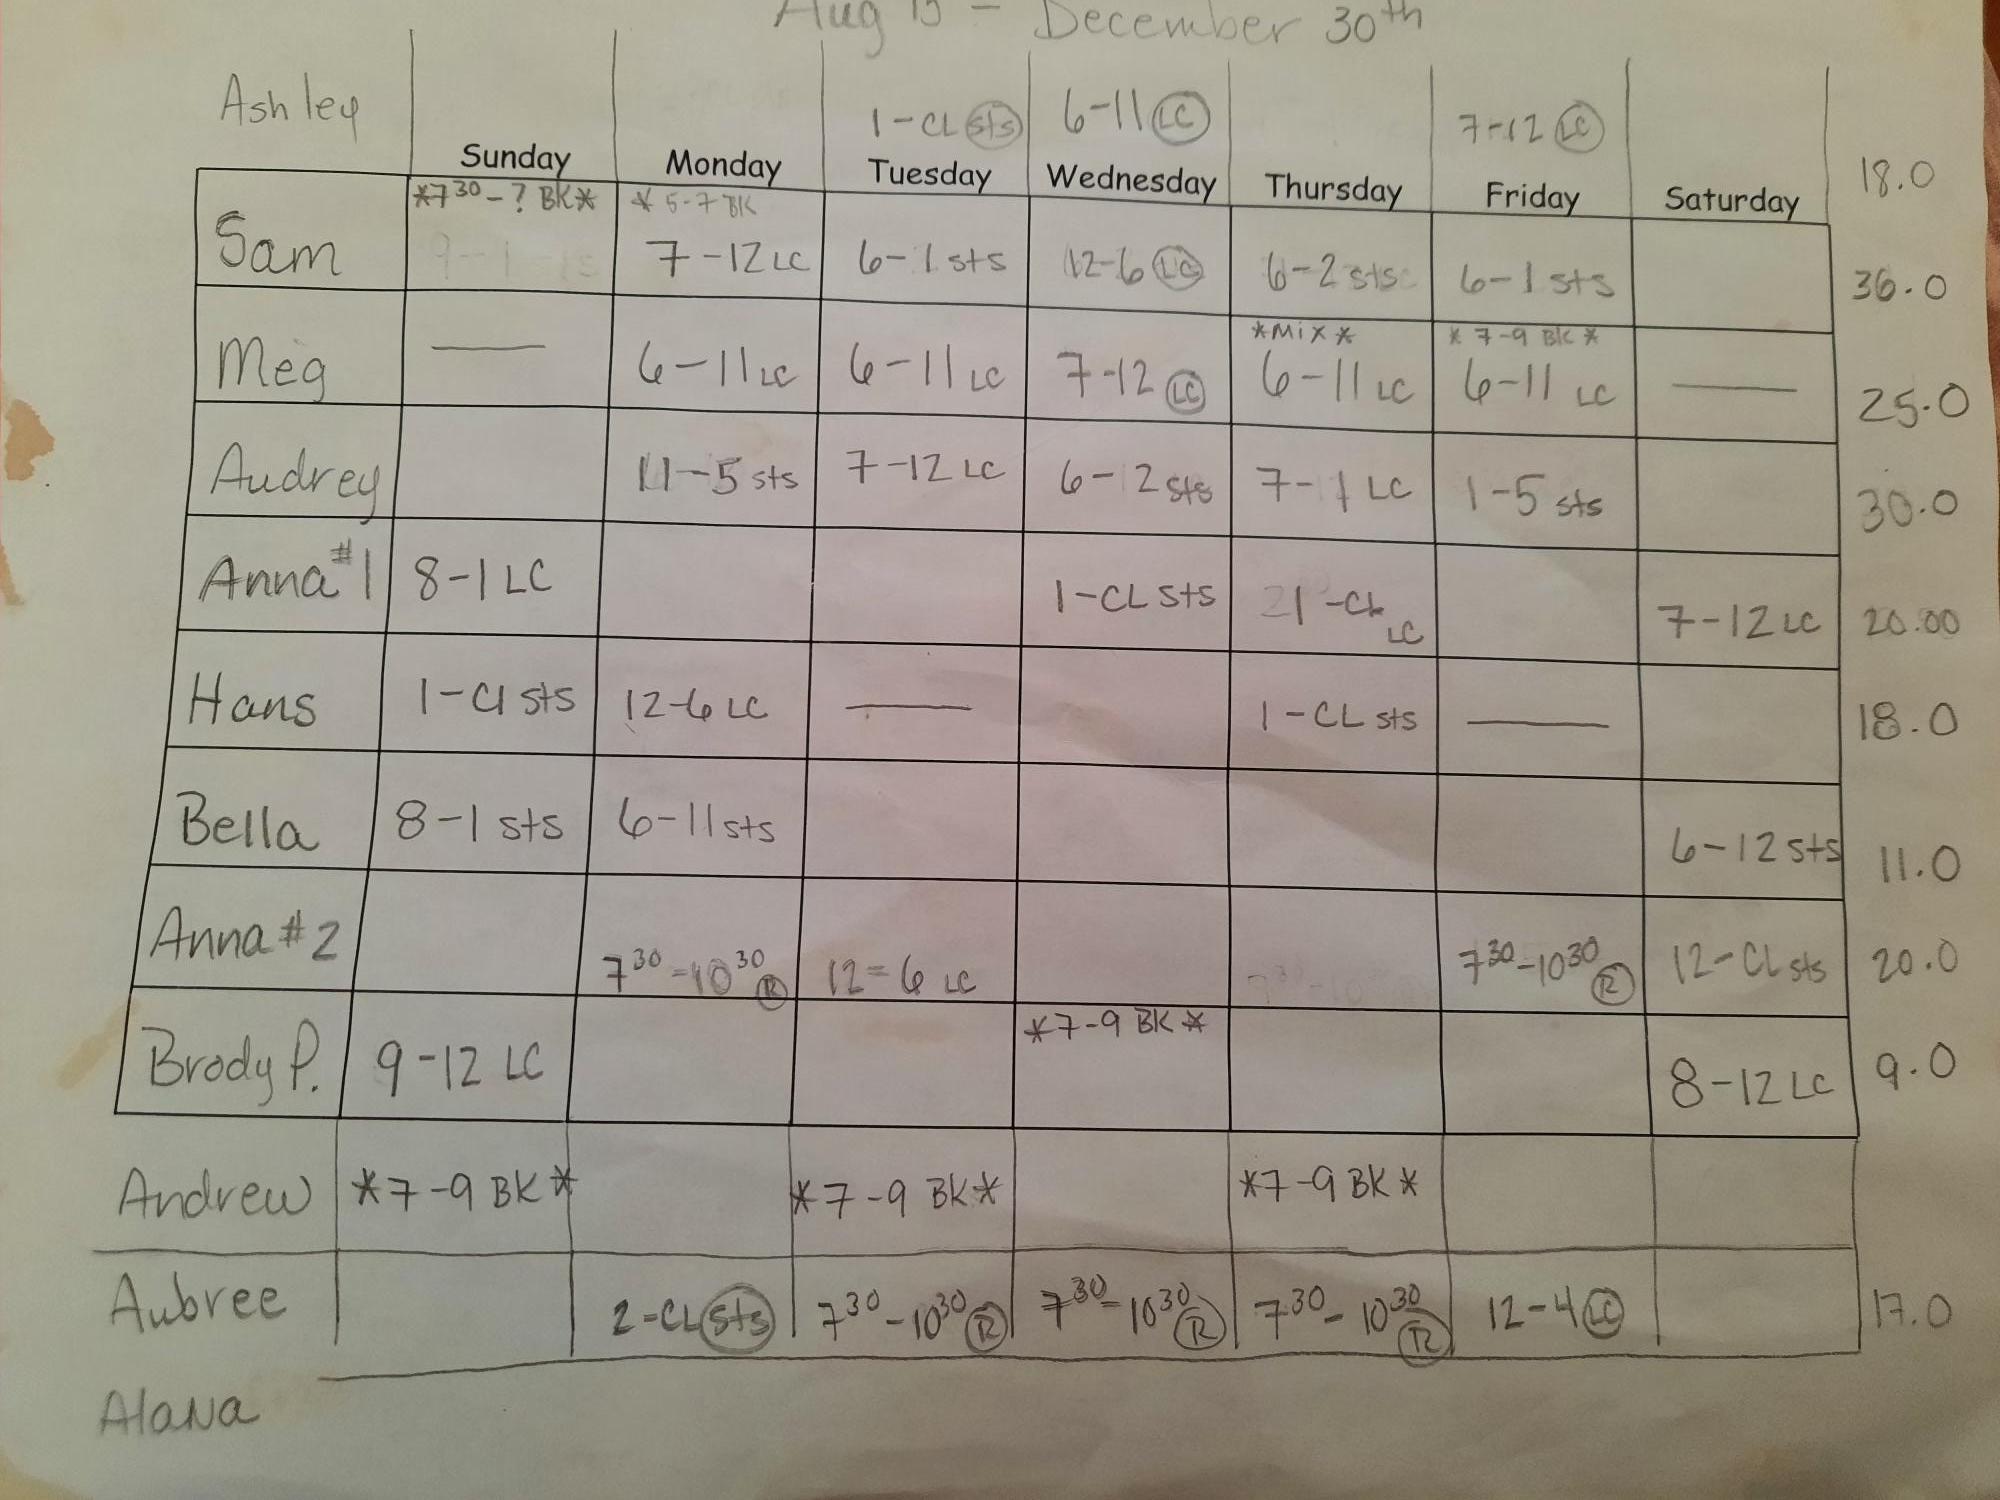 Aug 15 - December 30th
Ashley 1-CL sts 6-11 LC 7-12 LC 18.0
Sunday Monday Tuesday Wednesday Thursday Friday Saturday
*7 30 - ? BK* * 5-7 BK
Sam 7-12 LC 6-1 sts 12-6 LC 6-2 sts 6-1 sts 36.0
*Mix* * 7-9 BK *
Meg — 6-11 LC 6-11 LC 7-12 LC 6-11 LC 6-11 LC — 25.0
Audrey 11-5 sts 7-12 LC 6-12 sts 7-1 LC 1-5 sts 30.0
Anna #1 8-1 LC 1-CL sts 1-CL LC 7-12 LC 20.00
Hans 1-Cl sts 12-6 LC — 1-CL sts — 18.0
Bella 8-1 sts 6-11 sts 6-12 sts 11.0
Anna #2 7 30 - 10 30 R 12=6 LC 7 30 - 10 30 R 12-CL sts 20.0
*7-9 BK*
Brody P. 9-12 LC 8-12 LC 9.0
Andrew *7-9 BK* *7-9 BK* *7-9 BK*
Aubree 2-CL sts 7 30 - 10 30 R 7 30 - 10 30 R 7 30 - 10 30 R 12-4 LC 17.0
Alana